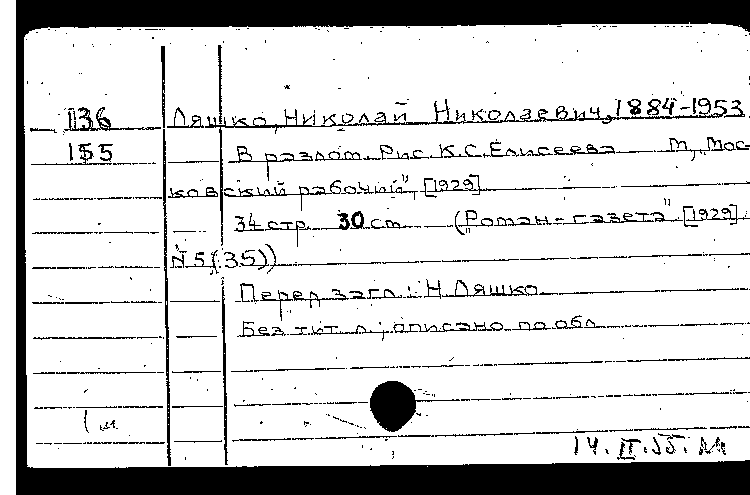 П36 Ляшко, Николай Николаевич, 1884-1953
155 В разлом. Рис. К.С. Елисеева М, „Мос-
ковский рабочий", [1929]
34 стр. 30 см. („Роман-газета" [1929]
N 5 (35))
Перед загл.: Н. Ляшко.
Без тит. л.; описано по обл.
1 м
14. II. 55.